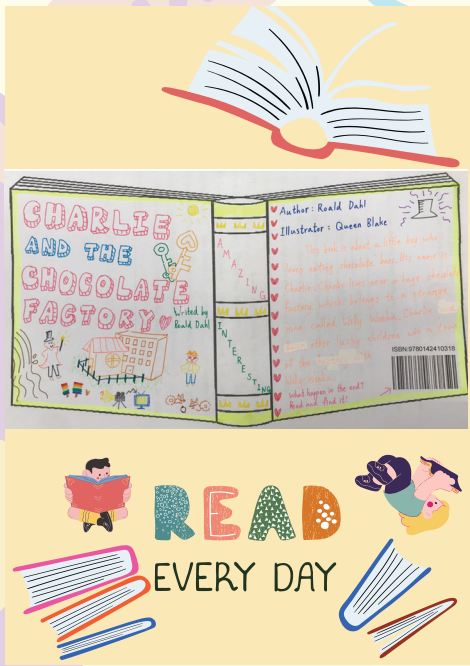 CHARLIE
AND THE
CHOCOLATE
FACTORY
Written by
Roald Dahl
AMAZING
INTERESTING
Author : Roald Dahl
Illustrator : Queen Blake
This book is about a little boy who
loves eating chocolate bars. His name is
Charlie. Charlie lives near a huge chocolate
factory which belongs to a strange
man called Willy Wonka. Charlie
other lucky children
of the
Willy Wonka.
What happens in the end?
Read and find it!
ISBN:9780142410318
READ
EVERY DAY